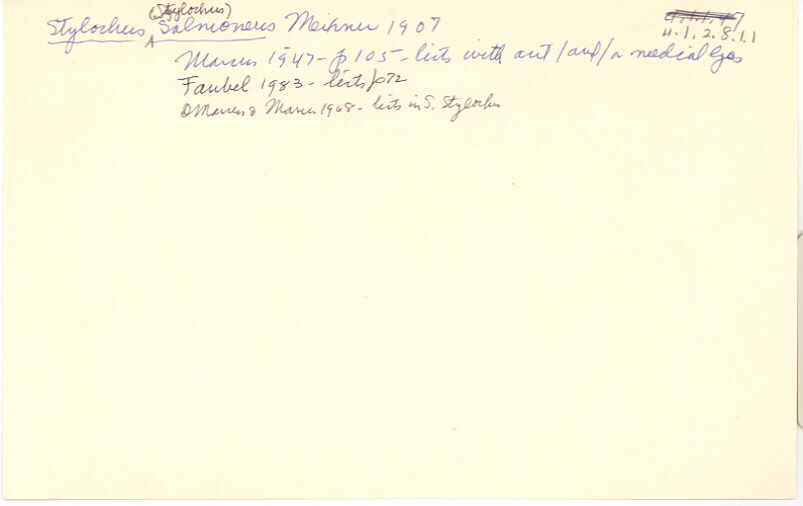 (Stylochus)
Stylochus Salmoneus Meixner 1907
4.1.2.8.1.1
Marcus 1947 - p 105 - lists with ant / and/or medial eyes
Faubel 1983 - lists p72
Marcus & Marcus 1968 - lists in S. Stylochus